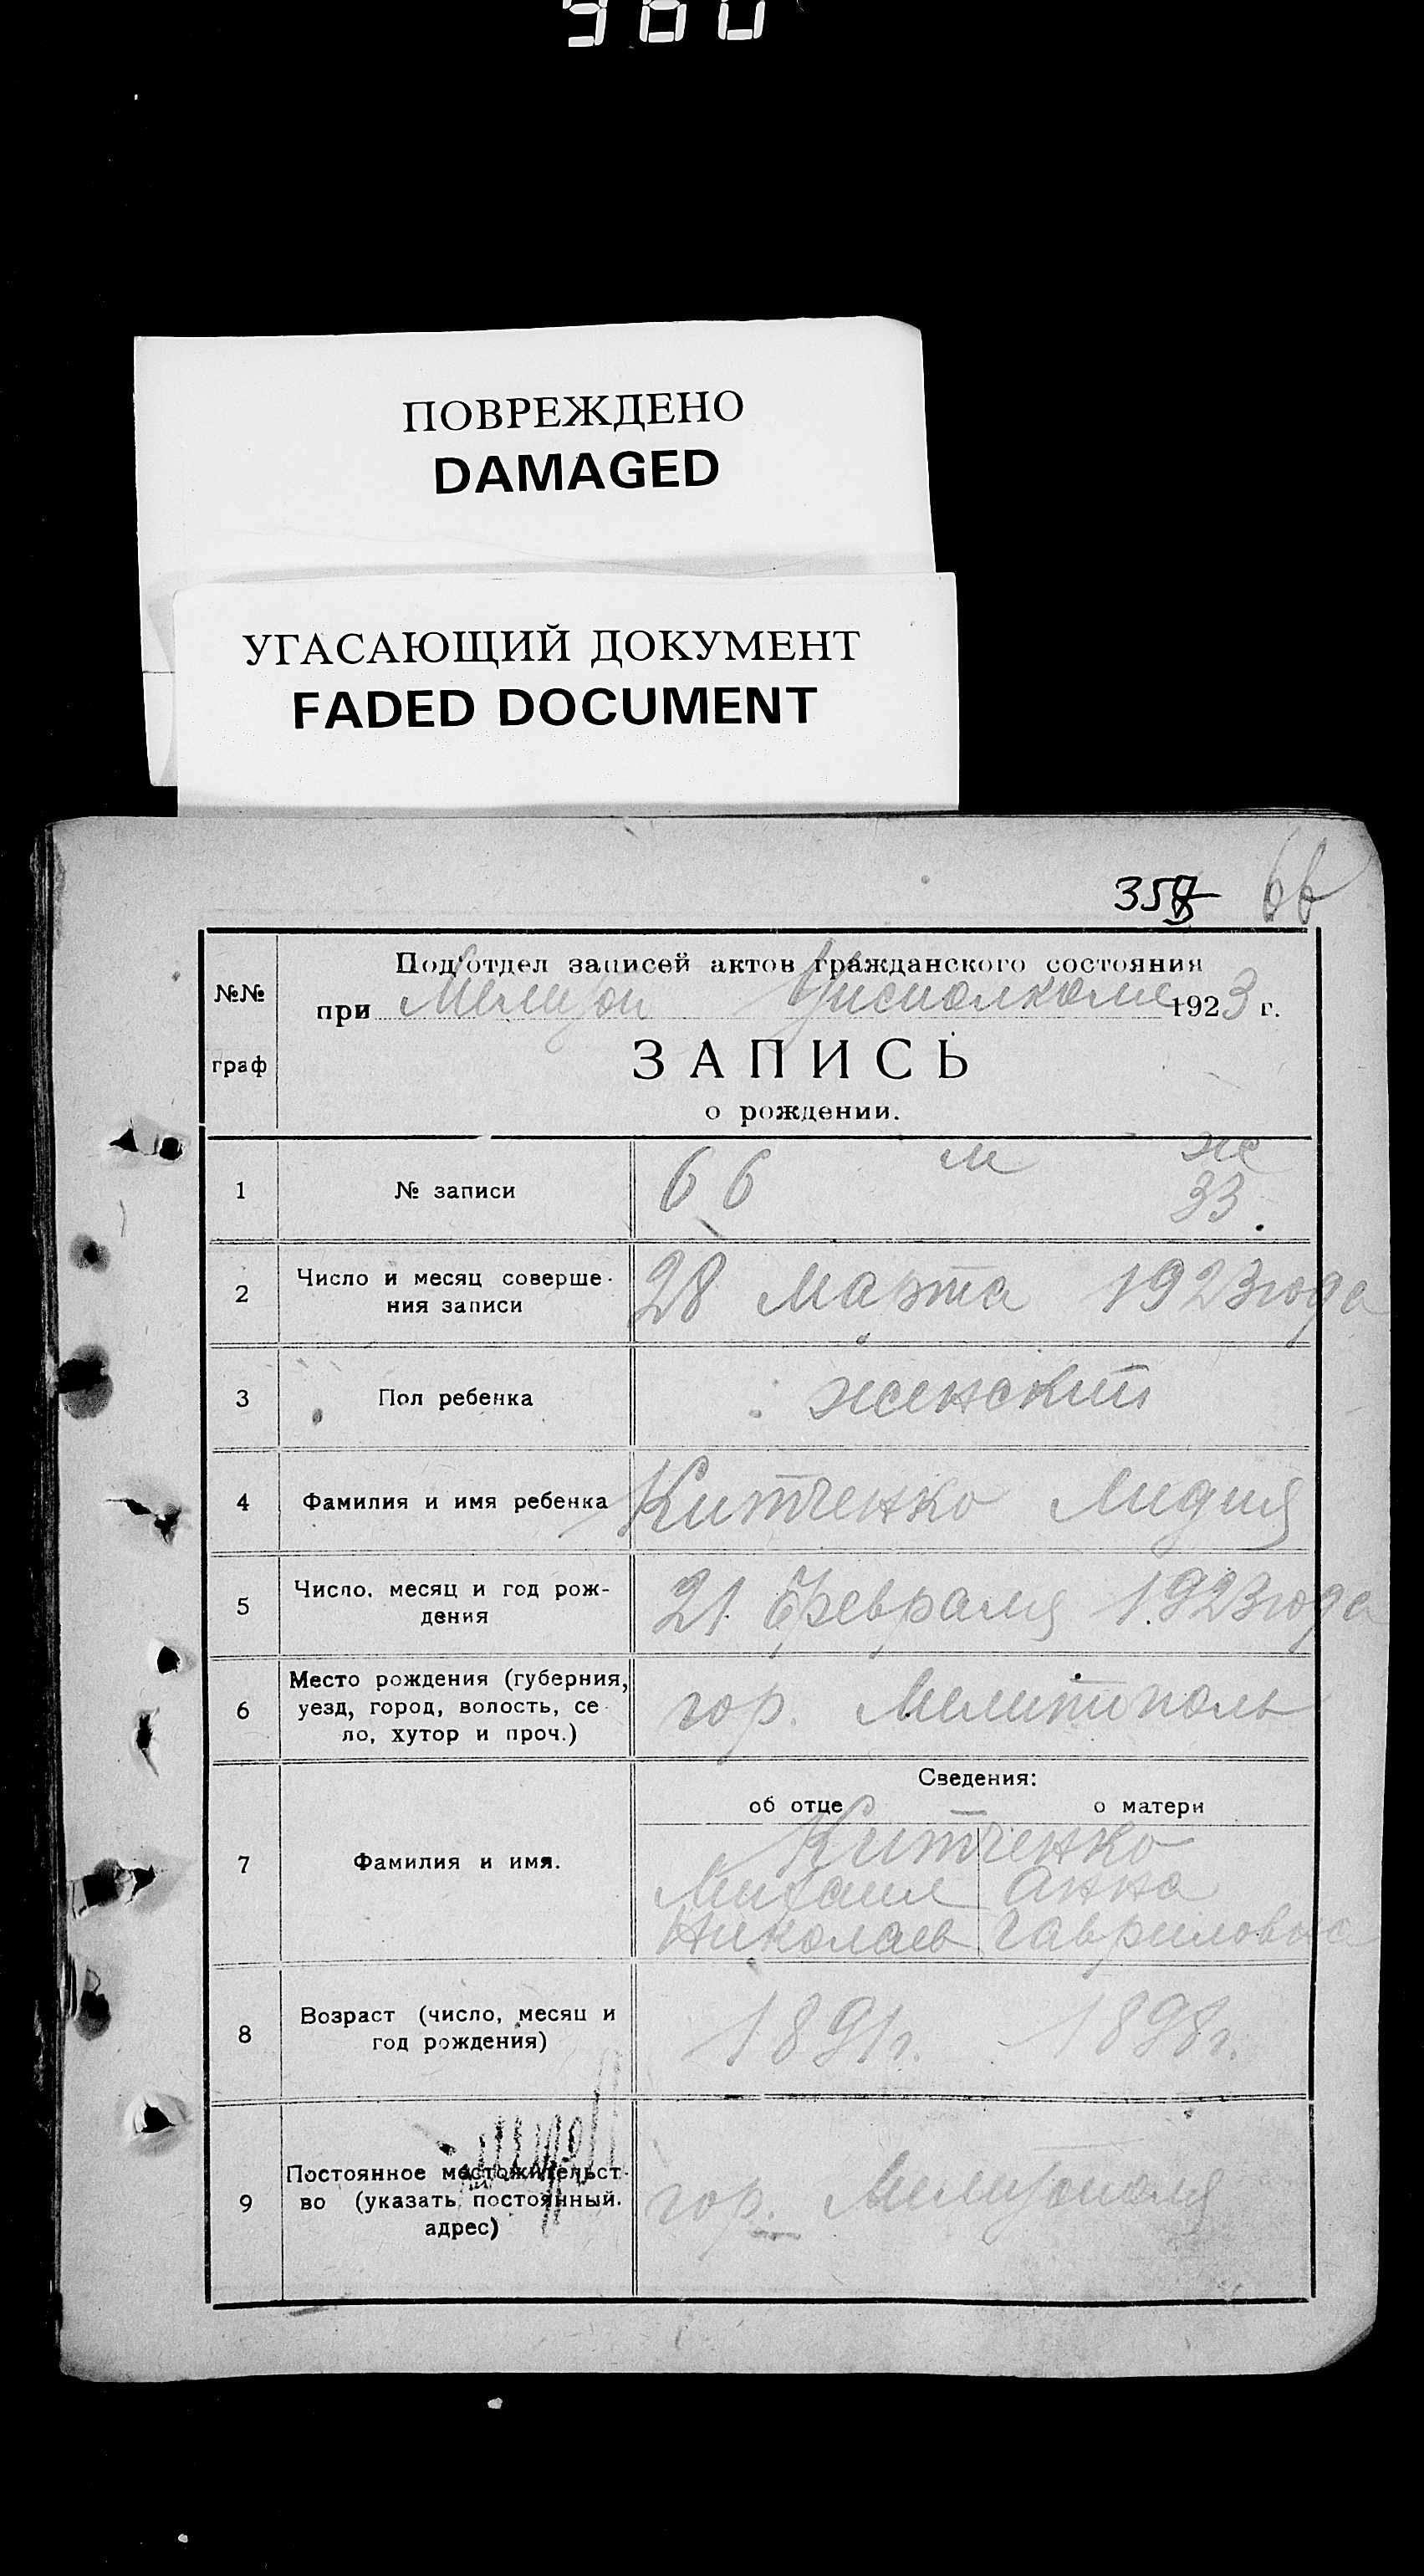 980
ПОВРЕЖДЕНО
DAMAGED
УГАСАЮЩИЙ ДОКУМЕНТ
FADED DOCUMENT
66
№№
граф
Под'отдел записей актов гражданского состояния
при Мелитоп Уисполкоме 1923 г.
ЗАПИСЬ
о рождении.
1 № записи 66 м ж
33.
2 Число и месяц соверше-
ния записи 28 марта 1923 года
3 Пол ребенка женский
4 Фамилия и имя ребенка Китченко Лидия
5 Число, месяц и год рож-
дения 21 Февраля 1923 года
6 Место рождения (губерния,
уезд, город, волость, се
ло, хутор и проч.) гор. Мелитополь
Сведения:
об отце о матери
7 Фамилия и имя. Китченко
Михаил Анна
Николаев Гавриловна
8 Возраст (число, месяц и
год рождения) 1891 г. 1898 г.
9 Постоянное местожительст-
во (указать постоянный
адрес) гор. Мелитополь